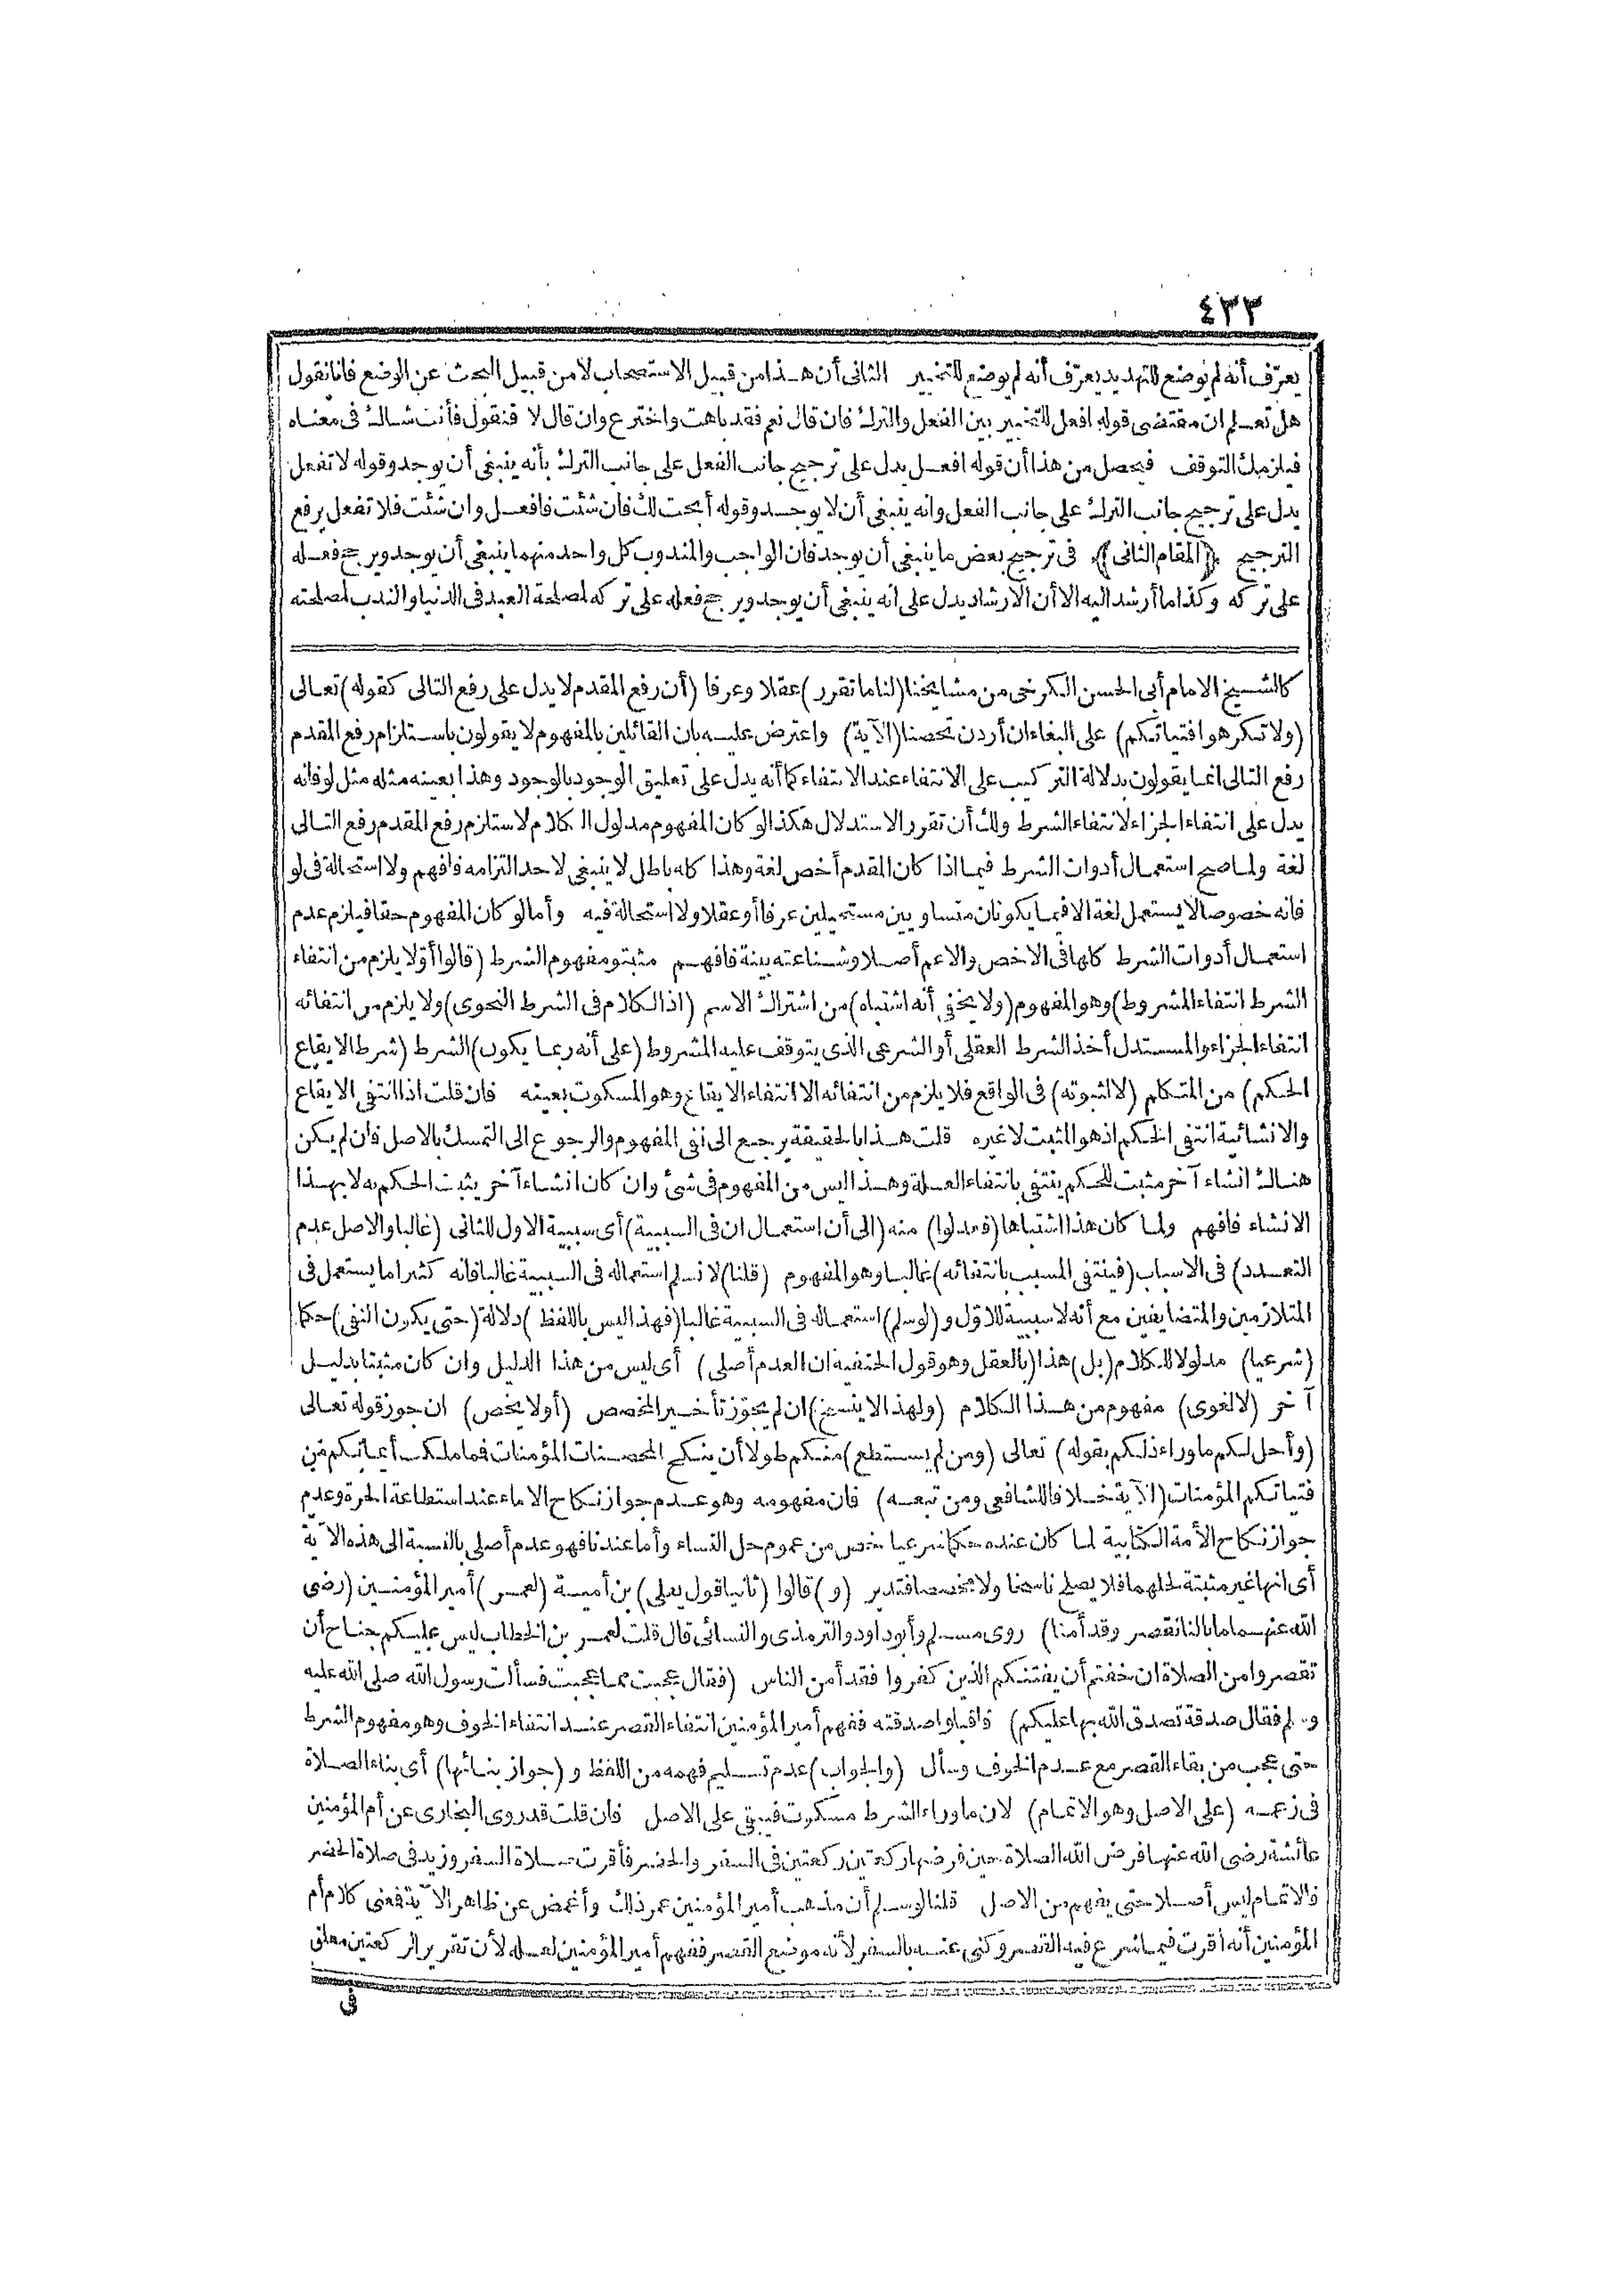 ٤٢٣
يعرّف أنه لم يوضع للتهديد يعرّف أنه لم يوضع للتخيير الثاني أن هذا من قبيل الاستصحاب لا من قبيل البحث عن الوضع فانا نقول
هل تعلم ان مقتضى قوله افعل للتخيير بين الفعل والترك فان قال نعم فقد باهت واخترع وان قال لا فنقول فأنت شاك في معناه
فيلزمك التوقف فيحصل من هذا أن قوله افعل يدل على ترجيح جانب الفعل على جانب الترك بأنه ينبغي أن يوجد وقوله لا تفعل
يدل على ترجيح جانب الترك على جانب الفعل وانه ينبغي أن لا يوجد وقوله أبحت لك فان شئت فافعل وان شئت فلا تفعل يرفع
الترجيح ﴿المقام الثاني﴾ في ترجيح بعض ما ينبغي أن يوجد فان الواجب والمندوب كل واحد منهما ينبغي أن يوجد ويرجح فعله
على تركه وكذا ما أرشد اليه الا أن الارشاد يدل على انه ينبغي أن يوجد ويرجح فعله على تركه لمصلحة العبد في الدنيا والندب لمصلحته
كالشيخ الامام أبي الحسن الكرخي من مشايخنا (لنا ما تقرر) عقلا وعرفا (أن رفع المقدم لا يدل على رفع التالي كقوله) تعالى
(ولا تكرهوا فتياتكم) على البغاء ان أردن تحصنا (الآية) واعترض عليه بان القائلين بالمفهوم لا يقولون باستلزام رفع المقدم
رفع التالي انما يقولون بدلالة التركيب على الانتفاء عند الانتفاء كما أنه يدل على تعليق الوجود بالوجود وهذا بعينه مثله مثل لو فانه
يدل على انتفاء الجزاء لانتفاء الشرط ولك أن تقرر الاستدلال هكذا لو كان المفهوم مدلول الكلام لاستلزم رفع المقدم رفع التالي
لغة ولما صح استعمال أدوات الشرط فيما اذا كان المقدم أخص لغة وهذا كله باطل لا ينبغي لاحد التزامه فافهم ولا استحالة في لو
فانه خصوصا لا يستعمل لغة الا فيما يكونان متساويين مستحيلين عرفا أو عقلا ولا استحالة فيه وأما لو كان المفهوم حقا فيلزم عدم
استعمال أدوات الشرط كلها في الاخص والاعم أصلا وشناعته بينة فافهم مثبتو مفهوم الشرط (قالوا أولا يلزم من انتفاء
الشرط انتفاء المشروط) وهو المفهوم (ولا يخفى أنه اشتباه) من اشتراك الاسم (اذ الكلام في الشرط النحوي) ولا يلزم من انتفائه
انتفاء الجزاء والمستدل أخذ الشرط العقلي أو الشرعي الذي يتوقف عليه المشروط (على أنه ربما يكون) الشرط (شرط الايقاع
الحكم) من المتكلم (لا لثبوته) في الواقع فلا يلزم من انتفائه الا انتفاء الايقاع وهو المسكوت بعينه فان قلت اذا انتفى الايقاع
والانشائية انتفى الحكم اذ هو المثبت لا غيره قلت هذا بالحقيقة يرجع الى نفي المفهوم والرجوع الى التمسك بالاصل فان لم يكن
هناك انشاء آخر مثبت للحكم ينتفي بانتفاء العلة وهذا ليس من المفهوم في شئ وان كان انشاء آخر يثبت الحكم به لا بهذا
الانشاء فافهم ولما كان هذا اشتباها (فعدلوا) منه (الى أن استعمال ان في السببية) أي سببية الاول للثاني (غالبا والاصل عدم
التعدد) في الاسباب (فينتفي المسبب بانتفائه) غالبا وهو المفهوم (قلنا) لا نسلم استعماله في السببية غالبا فانه كثيرا ما يستعمل في
المتلازمين والمتضايفين مع أنه لا سببية للاول و(لو سلم) استعماله في السببية غالبا (فهذا ليس باللفظ) دلالة (حتى يكون النفي) حكما
(شرعيا) مدلولا للكلام (بل) هذا (بالعقل وهو قول الحنفية ان العدم أصلي) أي ليس من هذا الدليل وان كان مثبتا بدليل
آخر (لا لغوي) مفهوم من هذا الكلام (ولهذا لا ينسخ) ان لم يجوّز تأخير المخصص (أو لا يخص) ان جوز قوله تعالى
(وأحل لكم ما وراء ذلكم بقوله) تعالى (ومن لم يستطع) منكم طولا أن ينكح المحصنات المؤمنات فمما ملكت أيمانكم من
فتياتكم المؤمنات (الآية خلافا للشافعي ومن تبعه) فان مفهومه وهو عدم جواز نكاح الاماء عند استطاعة الحرة وعدم
جواز نكاح الأمة الكتابية لما كان عنده حكما شرعيا خص من عموم حل النساء وأما عندنا فهو عدم أصلي بالنسبة الى هذه الآية
أي انها غير مثبتة لحلهما فلا يصلح ناسخا ولا مخصصا فتدبر (و) قالوا (ثانيا قول يعلى) بن أمية (لعمر) أمير المؤمنين (رضى
الله عنهما ما بالنا نقصر وقد أمنا) روى مسلم وأبو داود والترمذي والنسائي قال قلت لعمر بن الخطاب ليس عليكم جناح أن
تقصروا من الصلاة ان خفتم أن يفتنكم الذين كفروا فقد أمن الناس (فقال عجبت مما عجبت فسألت رسول الله صلى الله عليه
وسلم فقال صدقة تصدق الله بها عليكم) فاقبلوا صدقته ففهم أمير المؤمنين انتفاء القصر عند انتفاء الخوف وهو مفهوم الشرط
حتى عجب من بقاء القصر مع عدم الخوف وسأل (والجواب) عدم تسليم فهمه من اللفظ و (جواز بنائها) أي بناء الصلاة
في زعمه (على الاصل وهو الاتمام) لان ما وراء الشرط مسكوت فيبقى على الاصل فان قلت قد روى البخاري عن أم المؤمنين
عائشة رضى الله عنها فرض الله الصلاة حين فرضها ركعتين ركعتين في السفر والحضر فأقرت صلاة السفر وزيد في صلاة الحضر
فالاتمام ليس أصلا حتى يفهم من الاصل قلنا لو سلم أن مذهب أمير المؤمنين عمر ذلك وأغمض عن ظاهر الآية فمعنى كلام أم
المؤمنين أنه أقرت فيما شرع فيه القصر وكنى عنه بالسفر لأنه موضع القصر ففهم أمير المؤمنين لعله لأن تقرير الركعتين معلق
في